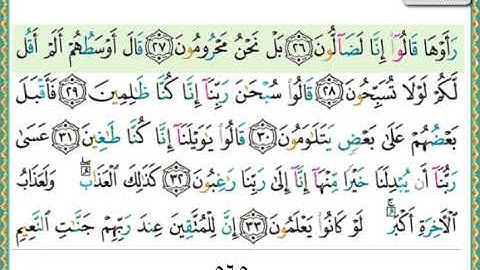 رَأَوْهَا قَالُوٓا۟ إِنَّا لَضَآلُّونَ ﴿٢٦﴾ بَلْ نَحْنُ مَحْرُومُونَ ﴿٢٧﴾ قَالَ أَوْسَطُهُمْ أَلَمْ أَقُل
لَّكُمْ لَوْلَا تُسَبِّحُونَ ﴿٢٨﴾ قَالُوا۟ سُبْحَـٰنَ رَبِّنَآ إِنَّا كُنَّا ظَـٰلِمِينَ ﴿٢٩﴾ فَأَقْبَلَ
بَعْضُهُمْ عَلَىٰ بَعْضٍ يَتَلَـٰوَمُونَ ﴿٣٠﴾ قَالُوا۟ يَـٰوَيْلَنَآ إِنَّا كُنَّا طَـٰغِينَ ﴿٣١﴾ عَسَىٰ
رَبُّنَآ أَن يُبْدِلَنَا خَيْرًا مِّنْهَآ إِنَّآ إِلَىٰ رَبِّنَا رَٰغِبُونَ ﴿٣٢﴾ كَذَٰلِكَ ٱلْعَذَابُ ۖ وَلَعَذَابُ
ٱلْـَٔاخِرَةِ أَكْبَرُ ۚ لَوْ كَانُوا۟ يَعْلَمُونَ ﴿٣٣﴾ إِنَّ لِلْمُتَّقِينَ عِندَ رَبِّهِمْ جَنَّـٰتِ ٱلنَّعِيمِ
٥٦٥